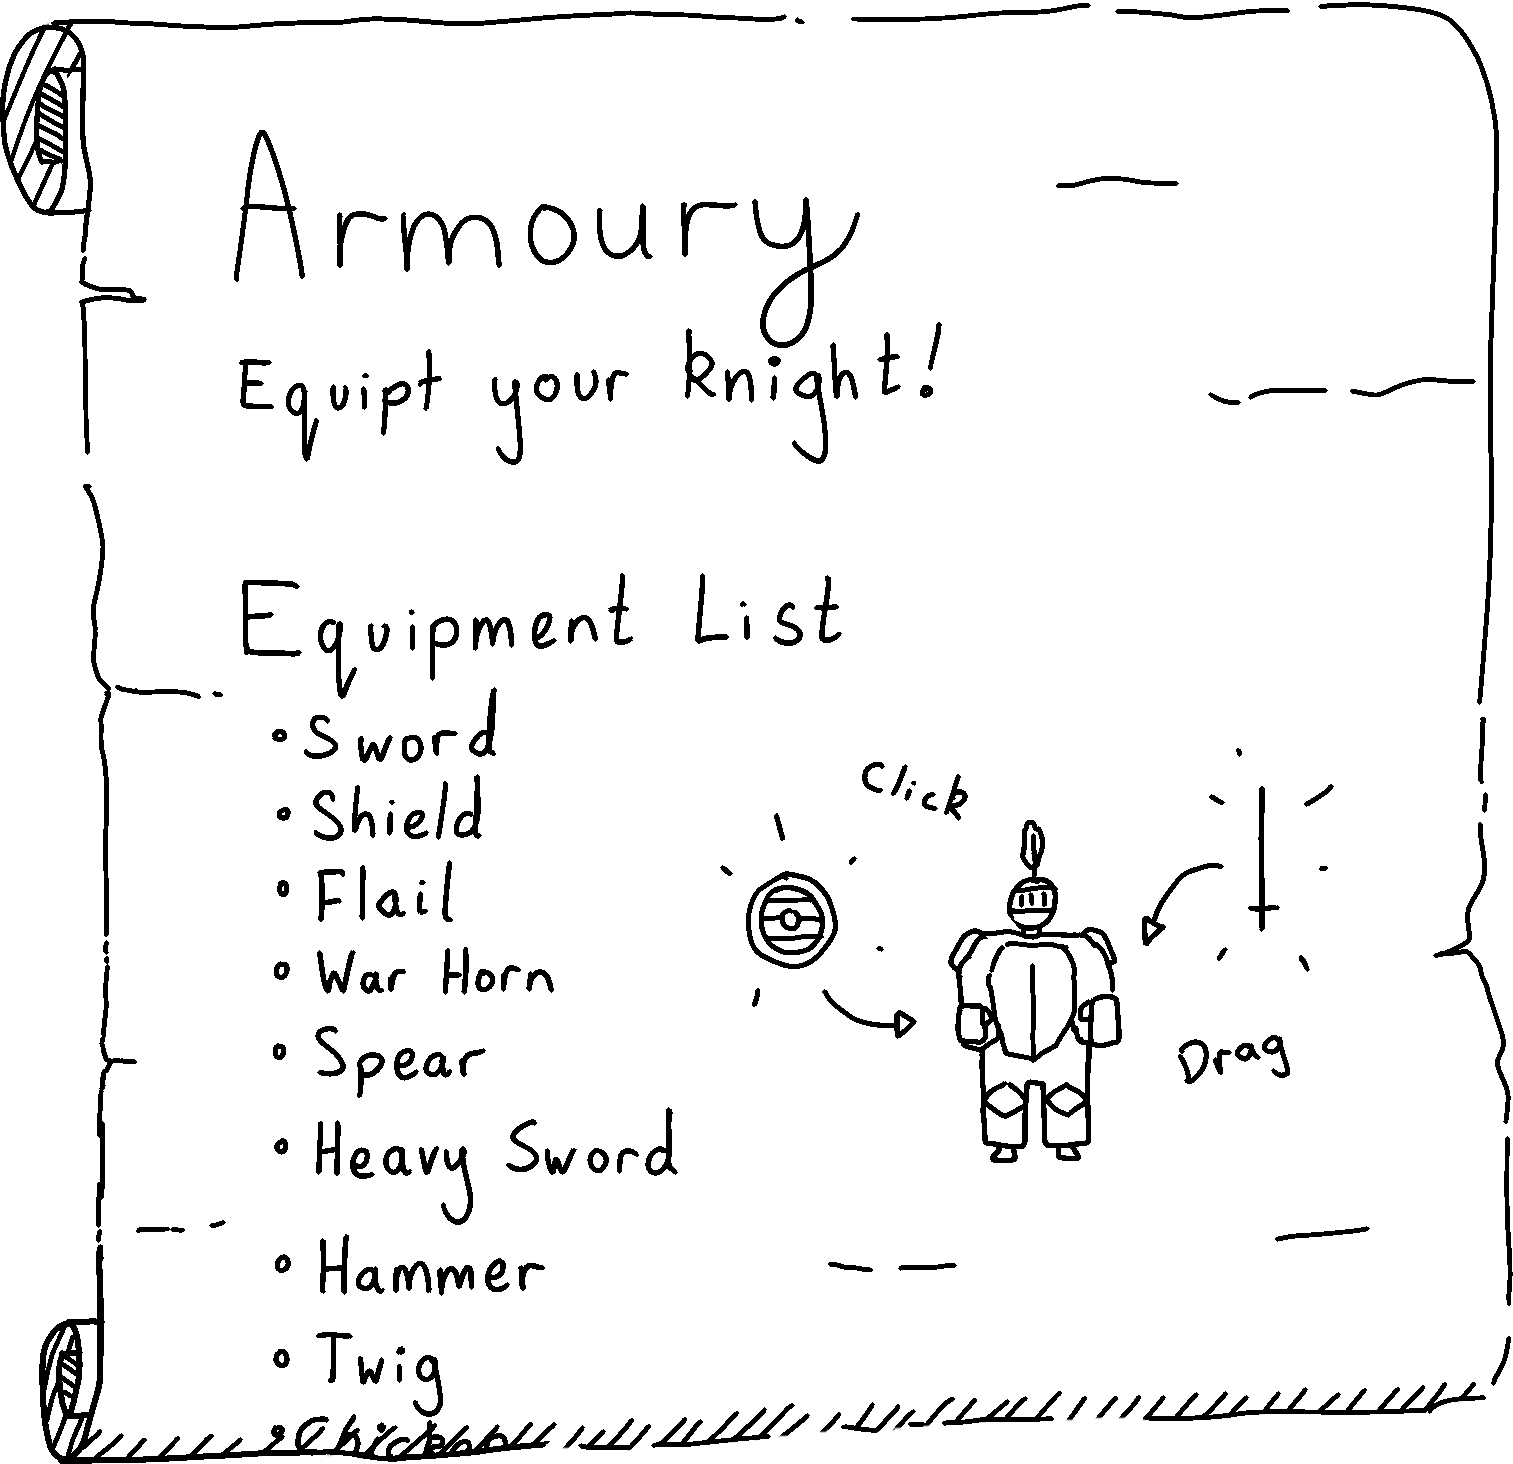 Armoury
Equipt your knight!
Equipment List
• Sword
• Shield
• Flail
• War Horn
• Spear
• Heavy Sword
• Hammer
• Twig
• Chicken
Click
Drag